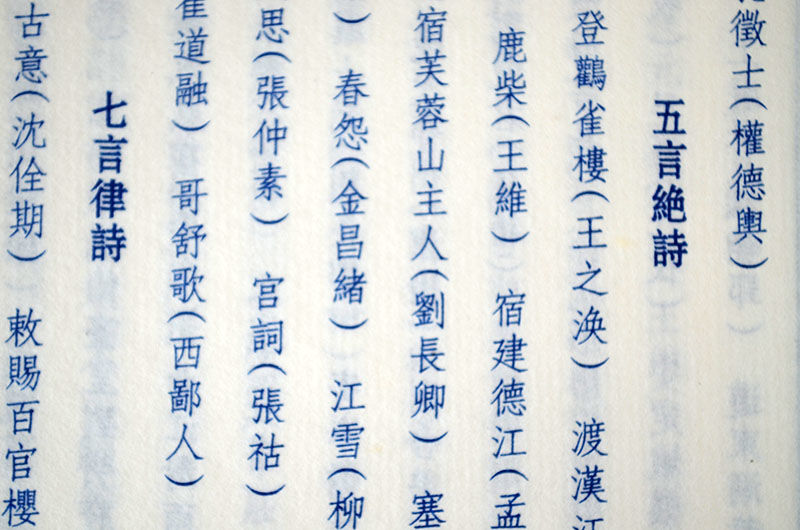 徵士（權德輿）
五言絶詩
登鸛雀樓（王之渙） 渡漢江
鹿柴（王維） 宿建德江（孟
宿芙蓉山主人（劉長卿） 塞
） 春怨（金昌緒） 江雪（柳
思（張仲素） 宮詞（張祜）
崔道融） 哥舒歌（西鄙人）
七言律詩
古意（沈佺期） 敕賜百官櫻